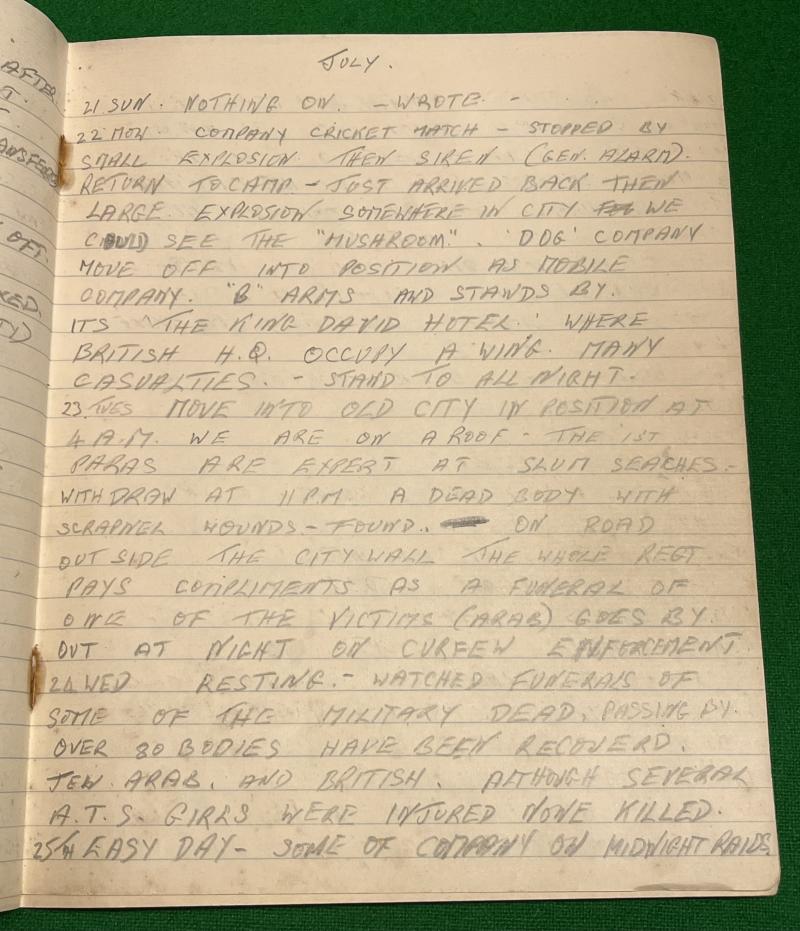 AFTER
T.
ANSFERRED
OFF.
KED.
TY)
JULY.
21 SUN. NOTHING ON. - WROTE -
22 MON. COMPANY CRICKET MATCH - STOPPED BY
SMALL EXPLOSION THEN SIREN (GEN. ALARM).
RETURN TO CAMP - JUST ARRIVED BACK THEN
LARGE EXPLOSION SOMEWHERE IN CITY WE
COULD SEE THE "MUSHROOM". 'DOG' COMPANY
MOVE OFF INTO POSITION AS MOBILE
COMPANY. "B" ARMS AND STANDS BY.
ITS 'THE KING DAVID HOTEL.' WHERE
BRITISH H.Q. OCCUPY A WING. MANY
CASUALTIES. - STAND TO ALL NIGHT.
23. TUES MOVE INTO OLD CITY IN POSITION AT
4 A.M. WE ARE ON A ROOF - THE 1ST
PARAS ARE EXPERT AT SLUM SEACHES.-
WITHDRAW AT 11 P.M. A DEAD BODY WITH
SCRAPNEL WOUNDS - FOUND. ON ROAD
OUTSIDE THE CITY WALL THE WHOLE REGT
PAYS COMPLIMENTS AS A FUNERAL OF
ONE OF THE VICTIMS (ARAB) GOES BY.
OUT AT NIGHT ON CURFEW ENFORCEMENT
24 WED RESTING. - WATCHED FUNERALS OF
SOME OF THE MILITARY DEAD, PASSING BY.
OVER 80 BODIES HAVE BEEN RECOVERD.
JEW. ARAB. AND BRITISH. ALTHOUGH SEVERAL
A.T.S. GIRLS WERE INJURED NONE KILLED.
25/H EASY DAY - SOME OF COMPANY ON MIDNIGHT RAIDS